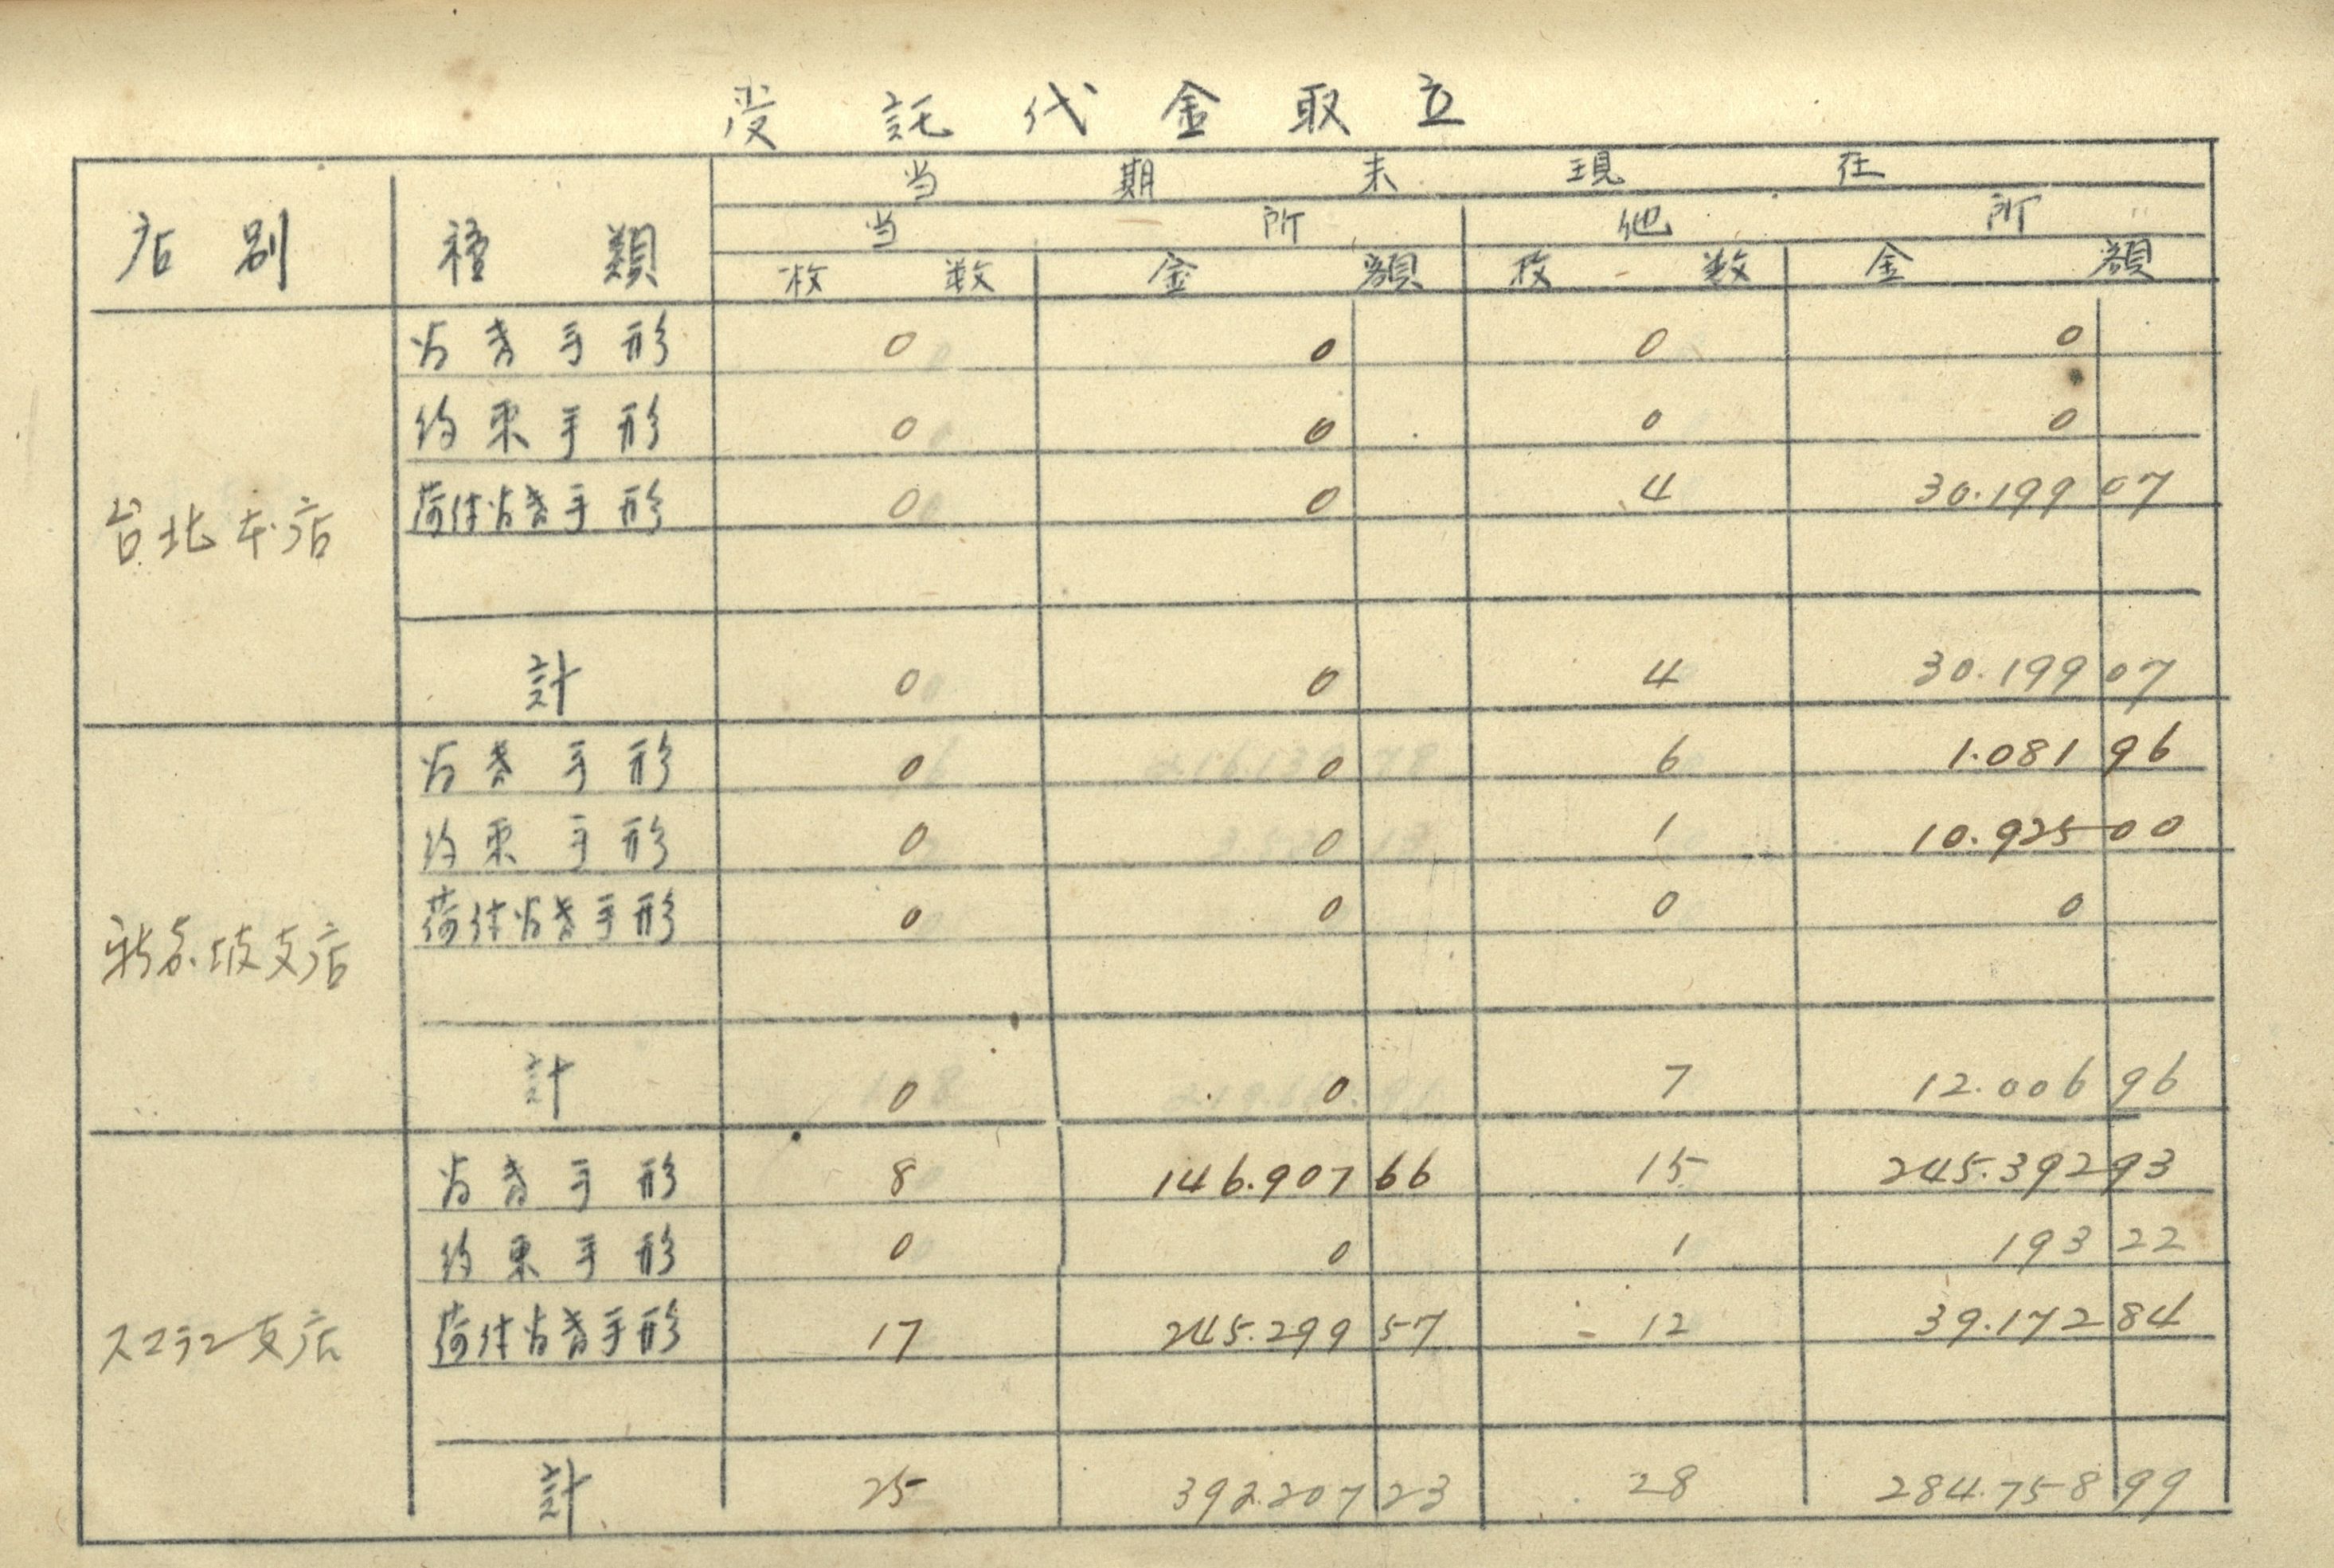 受託代金取立
店別 種類 当期末現在
当所 他所
枚数 金額 枚数 金額
台北本店
為替手形 0 0 0 0
約束手形 0 0 0 0
荷付為替手形 0 0 4 30.199 07
計 0 0 4 30.199 07
新嘉坡支店
為替手形 0 0 6 1.081 96
約束手形 0 0 1 10.925 00
荷付為替手形 0 0 0 0
計 0 0 7 12.006 96
スマラン支店
為替手形 8 146.907 66 15 245.392 93
約束手形 0 0 1 193 22
荷付為替手形 17 245.299 57 12 39.172 84
計 25 392.207 23 28 284.758 99